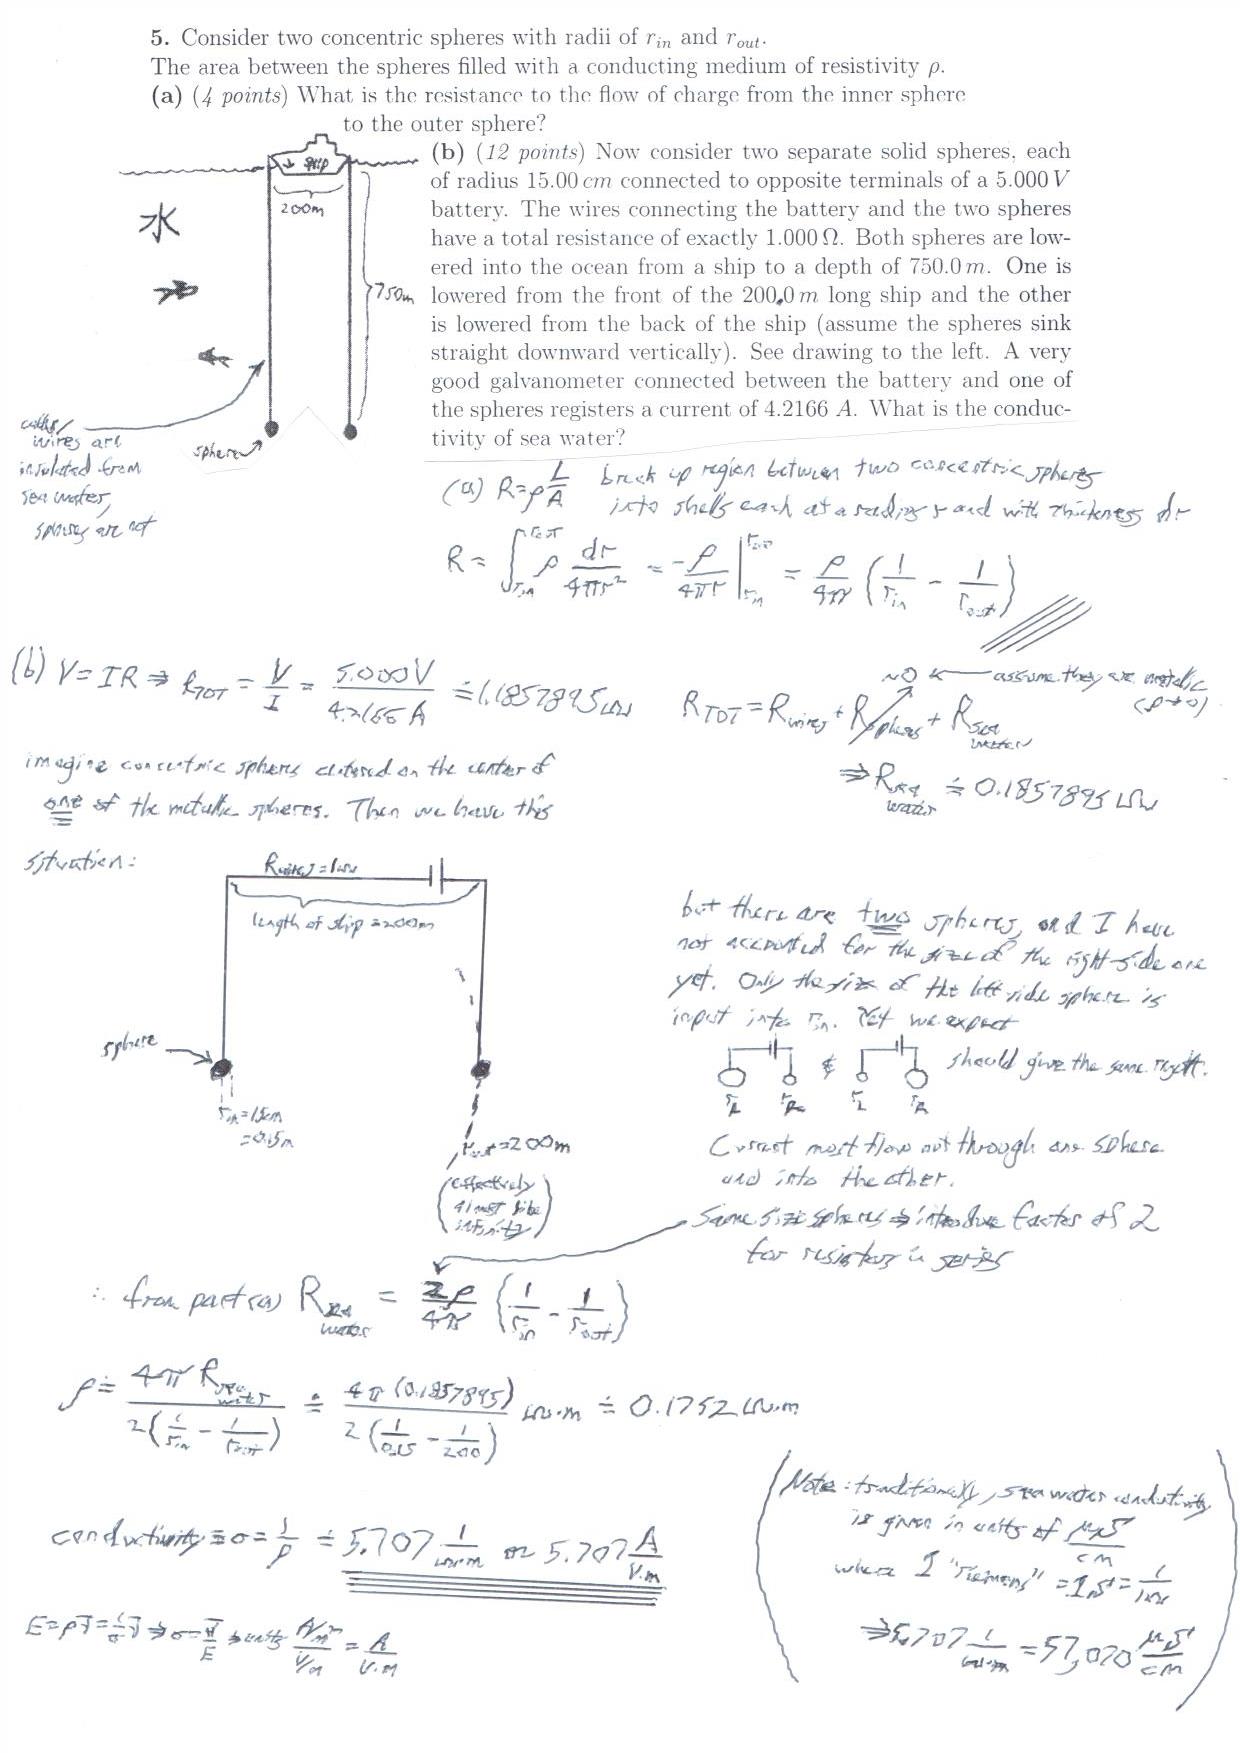 5. Consider two concentric spheres with radii of r_in and r_out.
The area between the spheres filled with a conducting medium of resistivity ρ.
(a) (4 points) What is the resistance to the flow of charge from the inner sphere
to the outer sphere?
(b) (12 points) Now consider two separate solid spheres, each
of radius 15.00 cm connected to opposite terminals of a 5.000 V
battery. The wires connecting the battery and the two spheres
have a total resistance of exactly 1.000 Ω. Both spheres are low-
ered into the ocean from a ship to a depth of 750.0 m. One is
lowered from the front of the 200.0 m long ship and the other
is lowered from the back of the ship (assume the spheres sink
straight downward vertically). See drawing to the left. A very
good galvanometer connected between the battery and one of
the spheres registers a current of 4.2166 A. What is the conduc-
tivity of sea water?
ship
200m
水
750m
wires are
insulated from
sea water,
spheres are not
sphere
(a) R=ρ L/A break up region between two concentric spheres
into shells each at a radius r and with thickness dr
R = ∫_{r_in}^{r_out} ρ dr/4πr² = -ρ/4πr |_{r_in}^{r_out} = ρ/4π (1/r_in - 1/r_out)
(b) V=IR ⇒ R_TOT = V/I = 5.000V/4.2166 A ≐ 1.1857895 Ω
NO ← assume they are metallic
(ρ→0)
R_TOT = R_wires + R_spheres + R_sea water
⇒ R_sea water ≐ 0.1857895 Ω
imagine concentric spheres centered on the center of
one of the metallic spheres. Then we have this
situation:
R_wires = 1Ω
length of ship = 200m
sphere
r_in = 15cm
= 0.15m
r_out = 200m
(effectively
almost like
infinity)
but there are two spheres, and I have
not accounted for the size of the right side one
yet. Only the size of the left side sphere is
input into r_in. Yet we expect
& should give the same result.
r_L r_R r_L r_R
Current must flow out through one sphere
and into the other.
Same size spheres ⇒ introduce factor of 2
for resistors in series
∴ from part (a) R_sea water = 2ρ/4π (1/r_in - 1/r_out)
ρ ≐ 4π R_sea water / 2(1/r_in - 1/r_out) ≐ 4π (0.1857895) / 2(1/0.15 - 1/200) Ω·m ≐ 0.1752 Ω·m
conductivity ≡ σ = 1/ρ ≐ 5.707 1/Ω·m or 5.707 A/V·m
E=ρJ=1/σ J ⇒ σ=J/E ⇒ units A/m² / V/m = A/V·m
(Note: traditionally, sea water conductivity
is given in units of μS/cm
where 1 "siemens" = 1 S = 1/Ω
⇒ 5.707 1/Ω·m = 57,070 μS/cm)